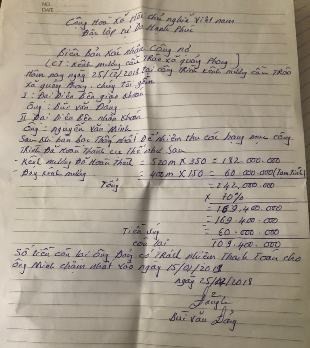 Cộng Hòa Xã Hội chủ nghĩa Việt nam
Độc lập tự Do Hạnh Phúc
Biên bản Xác Nhận Công nợ
(CT: Kênh mương cầm TRào xã quảng Phong)
Hôm nay ngày 25/12/2018 tại công Trình kênh mương cầm TRào
Xã quảng Phong. chúng Tôi gồm
I: Đại Diện Bên giao khoán
Ông: Bùi văn Đảng
II Đại Diện Bên nhận khoán
Ông: Nguyễn Văn Minh
Sau khi bàn bạc Thống nhất Để Nghiệm thu các hạng mục công
Trình Đã Hoàn Thành cụ Thể như Sau
- Kênh mương Đã Hoàn Thành = 520m X 350 = 182.000.000
- Đáy kênh mương = 400m X 150 = 60.000.000
Tổng = 242.000.000
X 70%
= 169.400.000
= 169.400.000
Tiền ứng = 60.000.000
còn lại 109.400.000
Số tiền còn lại ông Đảng có TRách nhiệm Thanh Toán cho
ông Minh chậm nhất vào ngày 15/02/2018
ngày 25/12/2018
Bùi văn Đảng